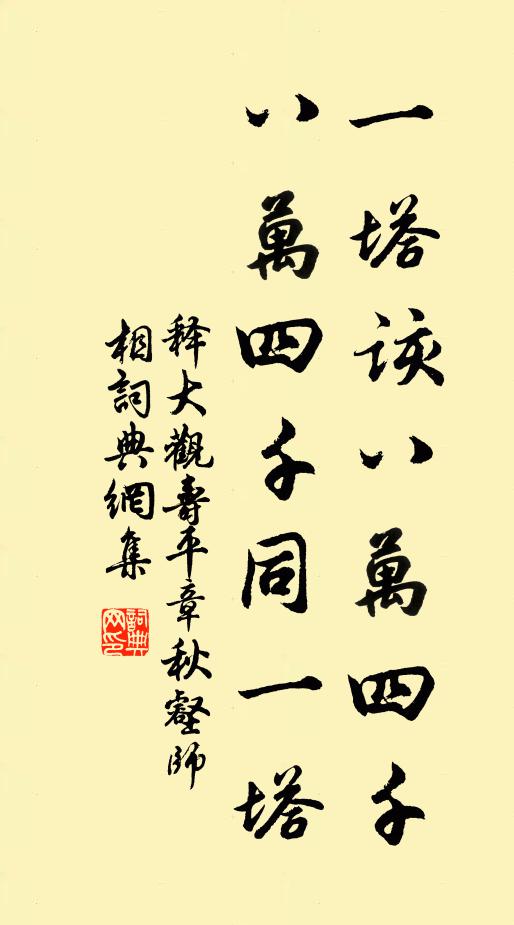 一塔該八萬四千
八萬四千同一塔
释大觀壽平章秋壑師
相詞典網集
詞典網印